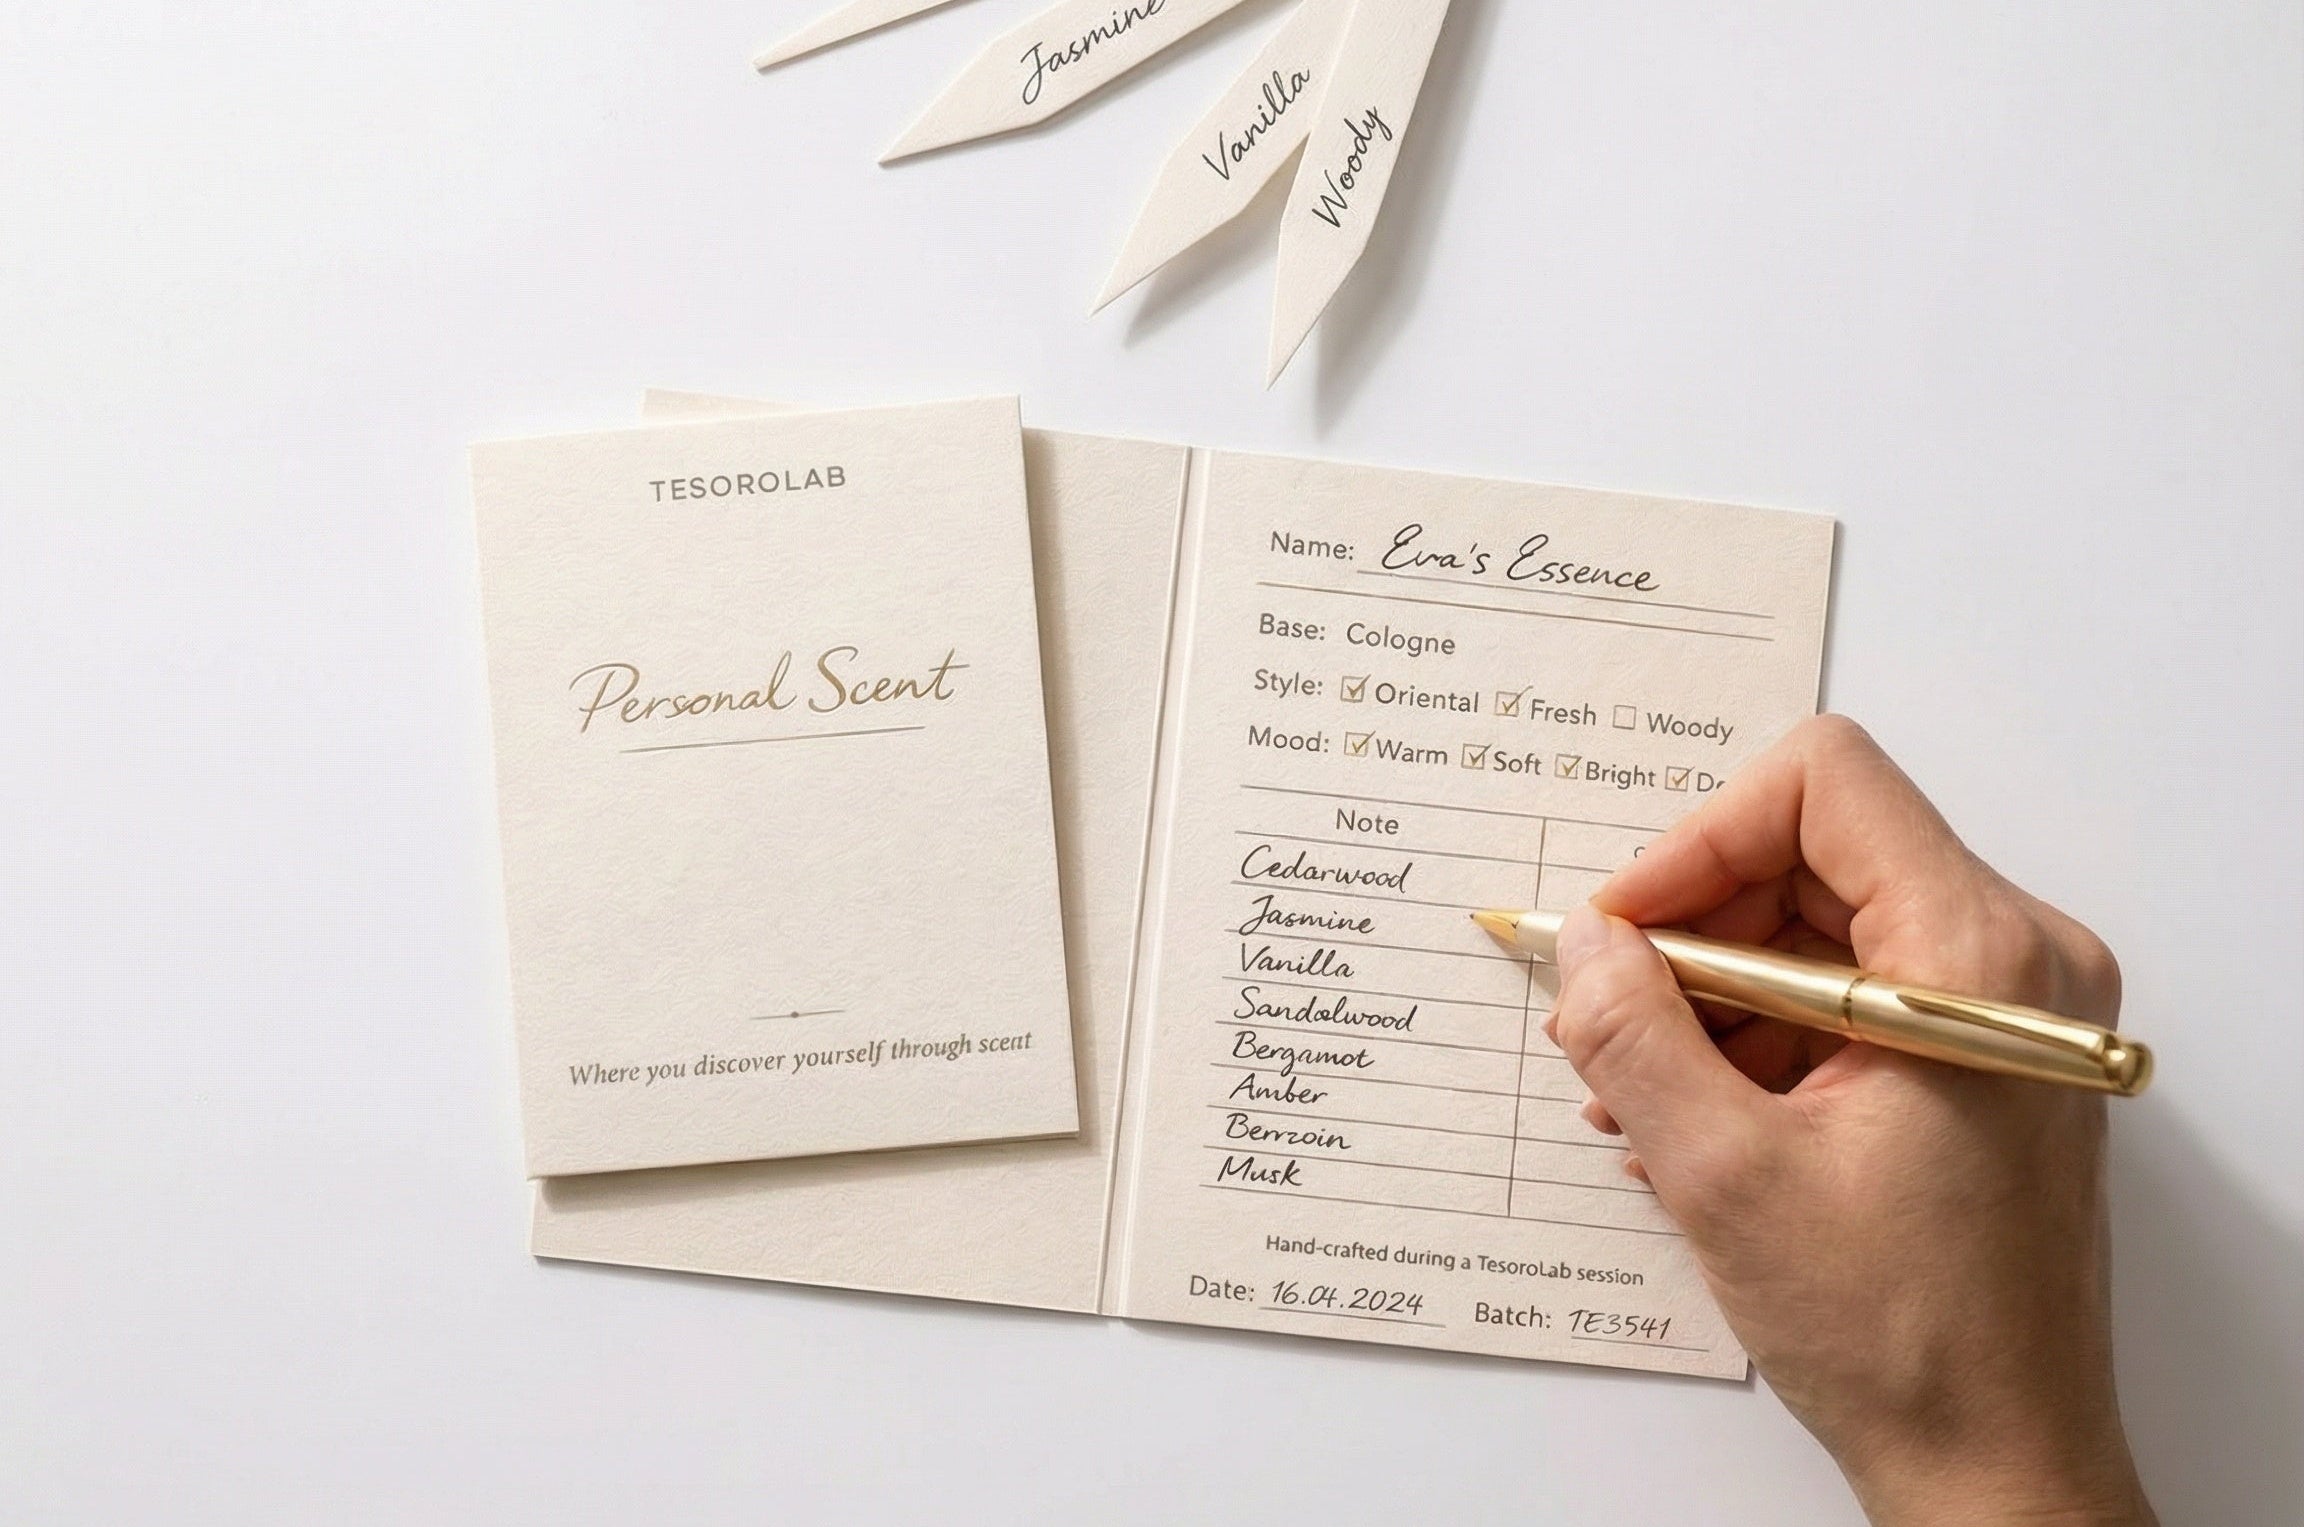 Jasmine
Vanilla
Woody
TESOROLAB
Personal Scent
Where you discover yourself through scent
Name: Eva's Essence
Base: Cologne
Style: ☑ Oriental ☑ Fresh ☐ Woody
Mood: ☑ Warm ☑ Soft ☑ Bright ☑
Note
Cedarwood
Jasmine
Vanilla
Sandalwood
Bergamot
Amber
Berrzoin
Musk
Hand-crafted during a TesoroLab session
Date: 16.04.2024 Batch: TE3541